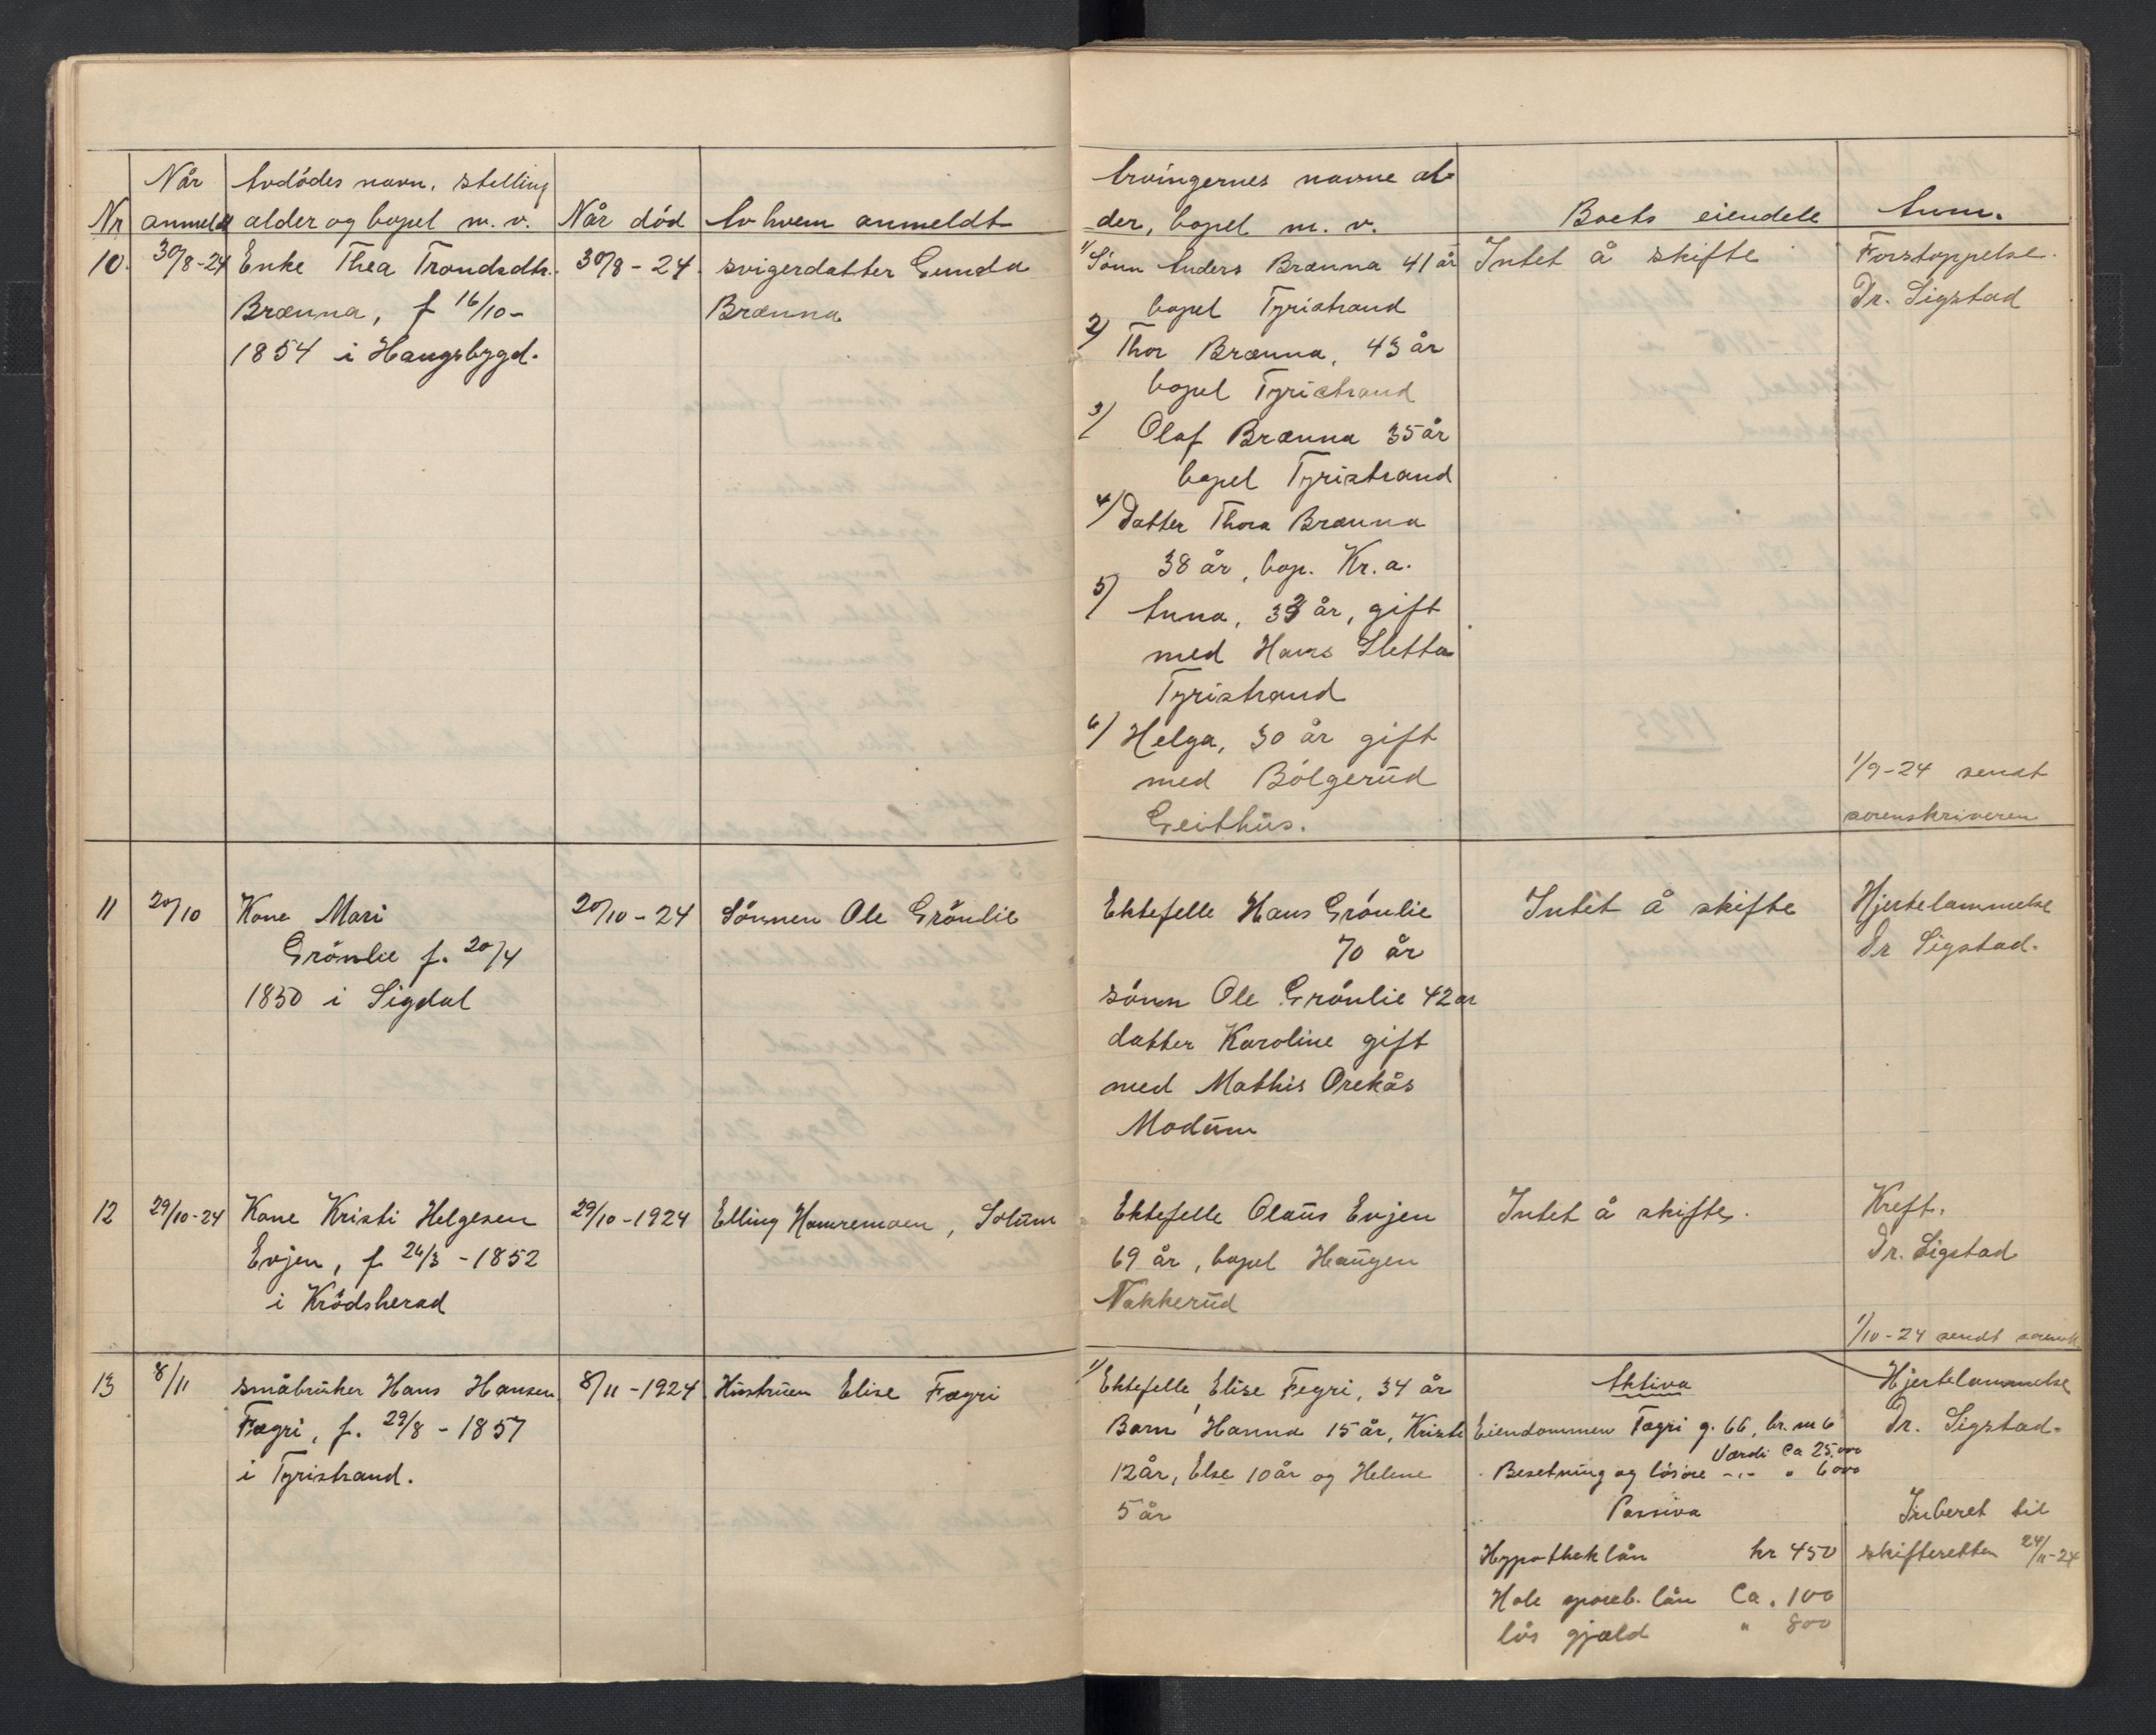 Når Avdödes navn, stilling
Nr anmeldt alder og bopel m. v. Når död Av hvem anmeldt
Arvingernes navne al-
der, bopel m. v. Boets eiendele Anm.
10. 30/8-24 Enke Thea Trondsdtr. 30/8 - 24. svigerdatter Gunda
Brænna, f 16/10- Brænna
1854 i Haugsbygd.
1/ Sönn Anders Brænna 41 år Intet å skifte Forstoppelse.
bopel Tyristrand Dr. Sigstad
2/ Thor Brænna, 43 år
bopel Tyristrand
3/ Olaf Brænna 35 år
bopel Tyristrand
4/ Datter Thora Brænna
38 år, bop. Kr.a.
5/ Anna, år, gift
med Hans Sletta
Tyristrand
6/ Helga, 30 år gift
med Bölgerud
Geithus.
1/9-24 sendt
sorenskriveren
11 20/10 Kone Mari 20/10 - 24 Sönnen Ole Grönlie
Grönlie f. 20/4
1850 i Sigdal
Ektefelle Hans Grönlie Intet å skifte Hjertelammelse
70 år Dr Sigstad.
sönn Ole Grönlie 42 år
datter Karoline gift
med Mathis Orekås
Modum
12 29/10-24 Kone Kristi Helgesen 29/10-1924 Elling Hamremoen, Solum
Evjen, f 26/3 - 1852
i Krödsherad
Ektefelle Olaus Evjen Intet å skifte. Kreft.
69 år, bopel Haugen Dr. Sigstad
Nakkerud
1/10-24 sendt sorensk.
13 8/11 småbruker Hans Hansen 8/11-1924 Hustruen Elise Fægri
Fægri, f. 29/8 - 1857
i Tyristrand.
1/ Ektefelle Elise Fegri, 34 år Aktiva Hjertelammelse
Barn Hanna 15 år, Kristi Eiendommen Fægri g. 66, br. nr 6 Dr. Sigstad.
Værdi Ca 25.000
12 år, Else 10 år og Helene Besetning og lösöre -"- " 6000
5 år Passiva Inberet til
Hypotheklån kr 450 skifteretten 24/11-24
Hole spareb. lån Ca. 100
lös gjæld " 800